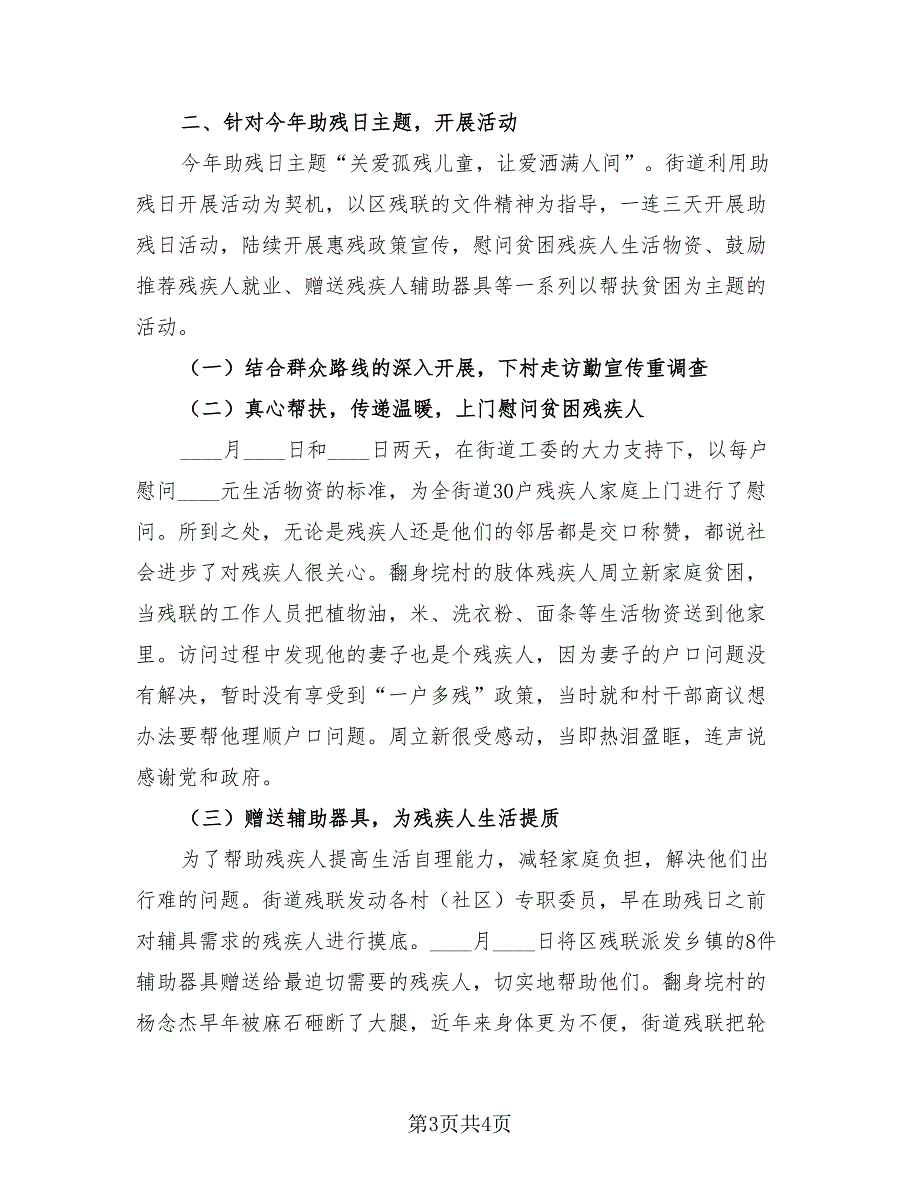 二、针对今年助残日主题，开展活动
今年助残日主题“关爱孤残儿童，让爱洒满人间”。街道利用助
残日开展活动为契机，以区残联的文件精神为指导，一连三天开展助
残日活动，陆续开展惠残政策宣传，慰问贫困残疾人生活物资、鼓励
推荐残疾人就业、赠送残疾人辅助器具等一系列以帮扶贫困为主题的
活动。
（一）结合群众路线的深入开展，下村走访勤宣传重调查
（二）真心帮扶，传递温暖，上门慰问贫困残疾人
____月____日和____日两天，在街道工委的大力支持下，以每户
慰问____元生活物资的标准，为全街道30户残疾人家庭上门进行了慰
问。所到之处，无论是残疾人还是他们的邻居都是交口称赞，都说社
会进步了对残疾人很关心。翻身垸村的肢体残疾人周立新家庭贫困，
当残联的工作人员把植物油，米、洗衣粉、面条等生活物资送到他家
里。访问过程中发现他的妻子也是个残疾人，因为妻子的户口问题没
有解决，暂时没有享受到“一户多残”政策，当时就和村干部商议想
办法要帮他理顺户口问题。周立新很受感动，当即热泪盈眶，连声说
感谢党和政府。
（三）赠送辅助器具，为残疾人生活提质
为了帮助残疾人提高生活自理能力，减轻家庭负担，解决他们出
行难的问题。街道残联发动各村（社区）专职委员，早在助残日之前
对辅具需求的残疾人进行摸底。____月____日将区残联派发乡镇的8件
辅助器具赠送给最迫切需要的残疾人，切实地帮助他们。翻身垸村的
杨念杰早年被麻石砸断了大腿，近年来身体更为不便，街道残联把轮
第3页共4页